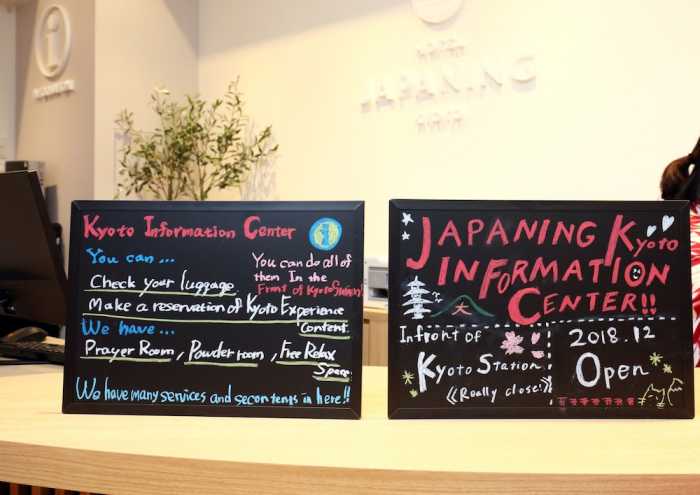 JAPANING
Kyoto Information Center
You can...
Check your luggage
Make a reservation of Kyoto Experience
Content
You can do all of
them In the
Front of Kyoto Station!
We have...
Prayer Room, Powder room, Free Relax
Space
We have many services and secontents in here!!
JAPANING Kyoto
INFORMATION
CENTER!!
In front of
Kyoto Station
《Really close!》
2018.12
Open